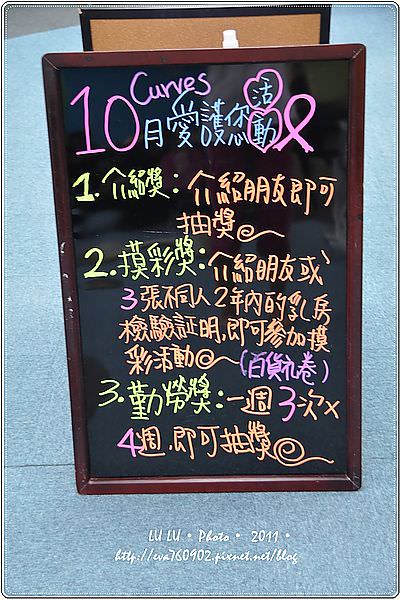 Curves
10月愛護您活動
1.介紹獎:介紹朋友即可
抽獎
2.摸彩獎:介紹朋友或
3張不同人2年內的乳房
檢驗証明,即可參加摸
彩活動(百貨礼卷)
3.勤勞獎:一週3次x
4週,即可抽獎
LU LU • Photo • 2011 •
http://eva760902.pixnet.net/blog